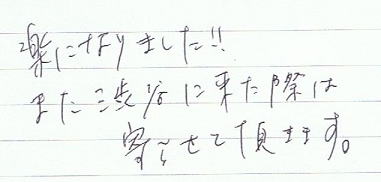 楽になりました!!
また渋谷に来た際は
寄らせて頂きます。